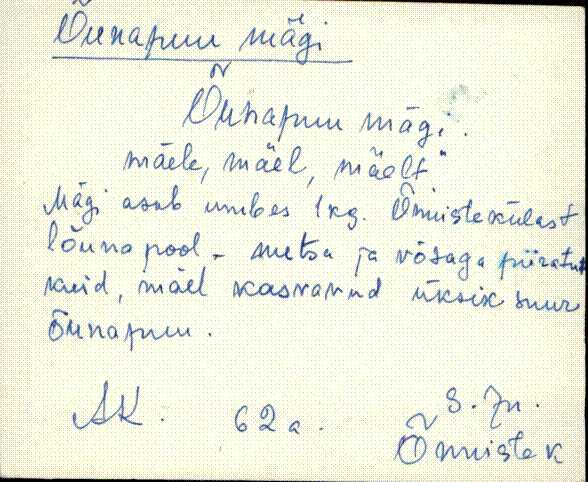 Õunapuu mägi
Õunapuu mägi.
mäele, mäel, mäelt"
Mägi asub umbes 1 kg. Õmistekülast
lõuna pool - metsa ja võsaga piiratut
kuid, mäel kasvanud üksik suur
õunapuu.
AK. 62 a. S. Jn.
Õmistek